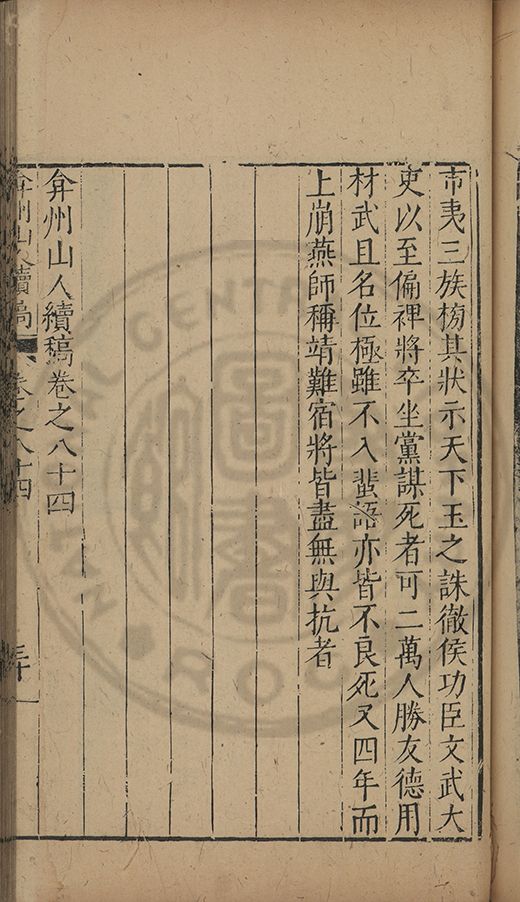 市夷三族榜其狀示天下玉之誅徹侯功臣文武大
吏以至偏裨將卒坐黨謀死者可二萬人勝友德用
材武且名位極雖不入蜚語亦皆不良死又四年而
上崩燕師稱靖難宿將皆盡無與抗者
弇州山人續稿卷之八十四
弇州山人續稿 卷之八十四